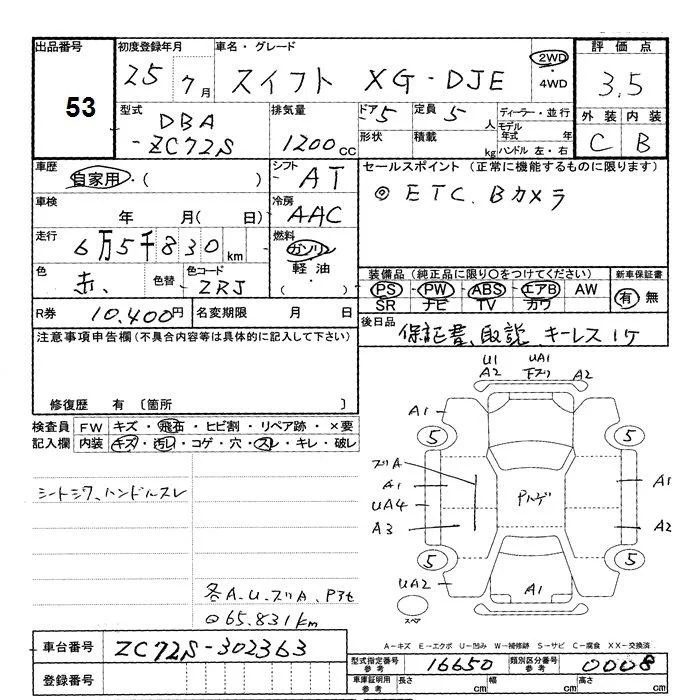 出品番号 初度登録年月 車名・グレード 評価点
53 25 7月 スイフト XG-DJE 2WD ・4WD 3.5
型式 DBA -ZC72S 排気量 1200cc ドア 5 定員 5人 ディーラー・並行 外装 内装
形状 積載 kg モデル年式 年 ハンドル 左・右 C B
車歴 自家用・( ) シフト AT セールスポイント (正常に機能するものに限ります)
車検 年 月( 日) 冷房 AAC ◎ ETC、Bカメラ
走行 6万5千830km 燃料 ガソリン 軽油 ・( )
色 赤、 色替 色コード ZRJ 装備品 (純正品に限り○をつけてください) 新車保証書
PS PW ABS エアB AW 有 無
SR ナビ TV カワ
R券 10,400円 名変期限 月 日 後日品 保証書、取説、キーレス1ケ
注意事項申告欄 (不具合内容等は具体的に記入して下さい)
修復歴 有 〔箇所 〕
検査員記入欄 FW キズ・飛石・ヒビ割・リペア跡・×要
内装 キズ・汚レ・コゲ・穴・スレ・キレ・破レ
シートシワ、ハンドルスレ
各A.U.スリA、P3t
◎65.831km
U1 UA1
A2 モスリ A2
A1
5 5
スリA
A1 A1
UA4 Pハゲ
A3 A2
5 5
UA2 A1
スペア
A-キズ E-エクボ U-凹み W-補修跡 S-サビ C-腐食 XX-交換済
車台番号 ZC72S-302363 型式指定番号 参考 16650 類別区分番号 参考 0008
登録番号 車庫証明用 参考 長さ cm 幅 cm 高さ cm